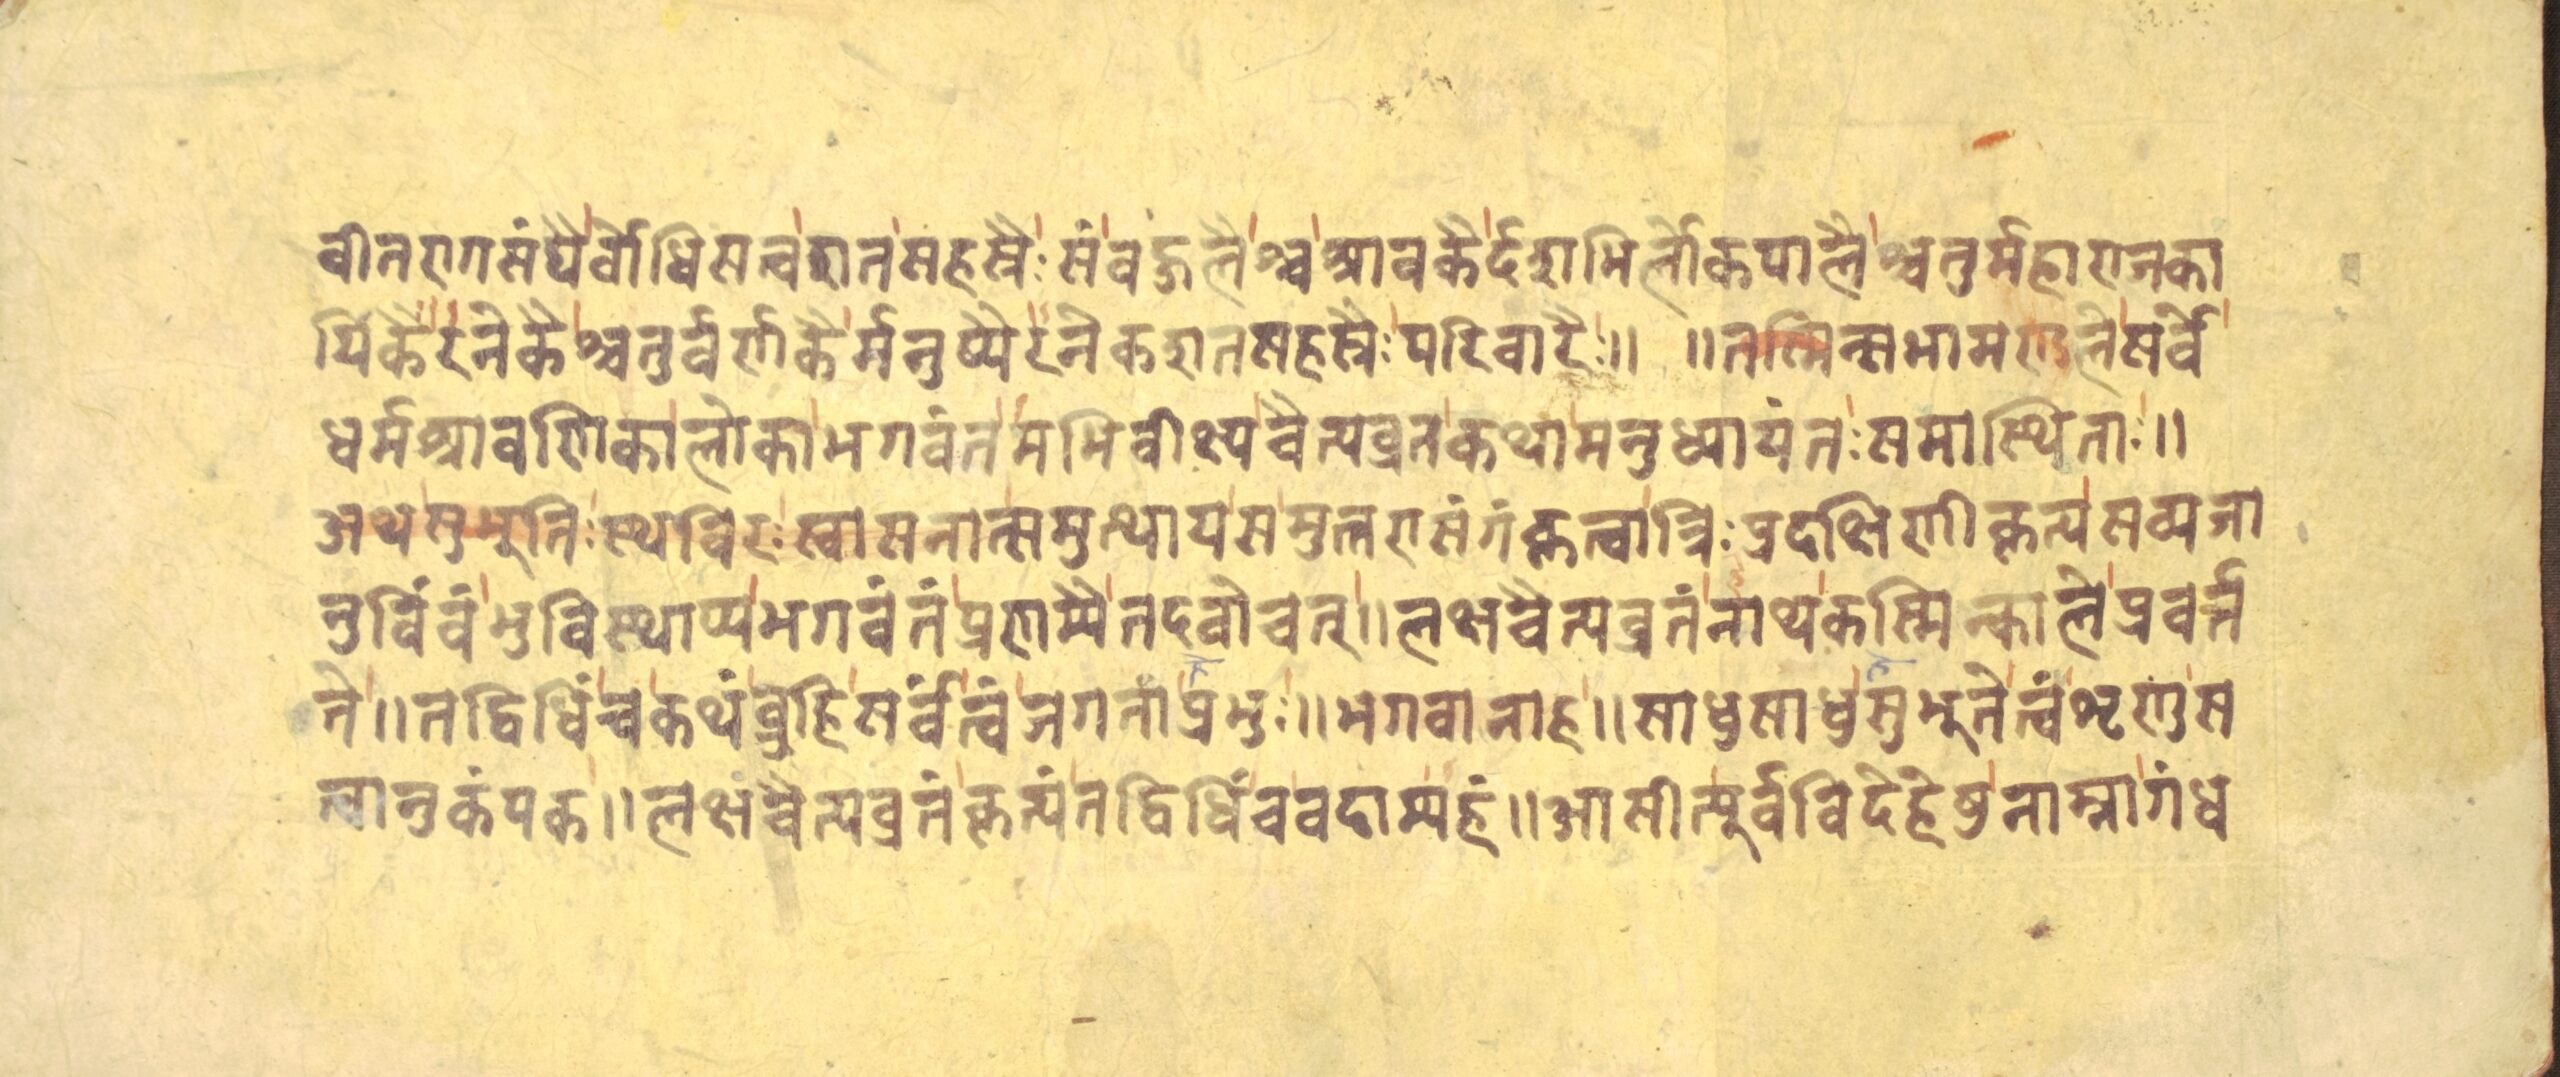 वीतरागसंघैर्वोधिसत्वशतसहस्रैः संवहुलैश्चश्रावकैर्दशभिर्लोकपालैश्चतुर्महाराजका
यिकैरनेकैश्चतुर्वर्णकैर्मनुष्यैरनेकशतसहस्रैः परिवारैः॥ ॥तस्मिन्सभामण्डलेसर्वे
धर्मश्रावणिकालोकाभगवंतमभिवीक्ष्यचैत्यव्रतकथामनुध्यायंतः समास्थिताः॥
अथसुभूतिः स्थविरः स्वासनात्समुत्थायसमुत्तरासंगंकृत्वात्रिः प्रदक्षिणीकृत्यसव्यजा
नुविंवंभुविस्थाप्यभगवंतंप्रणम्यैतदवोचत्॥लक्षचैत्यव्रतंनाथकस्मिन्कालेप्रवर्त
ते॥तद्विधिंचकथंव्रुहिसर्वंत्वंजगतांप्रभुः॥भगवानाह॥साधुसाधुसुभूतेत्वंशृणुस
त्वानुकंपक॥लक्षचैत्यव्रतंकृत्यंतद्विधिंचवदाम्यहं॥आसीत्पूर्वविदेहेषुनाम्नागंध